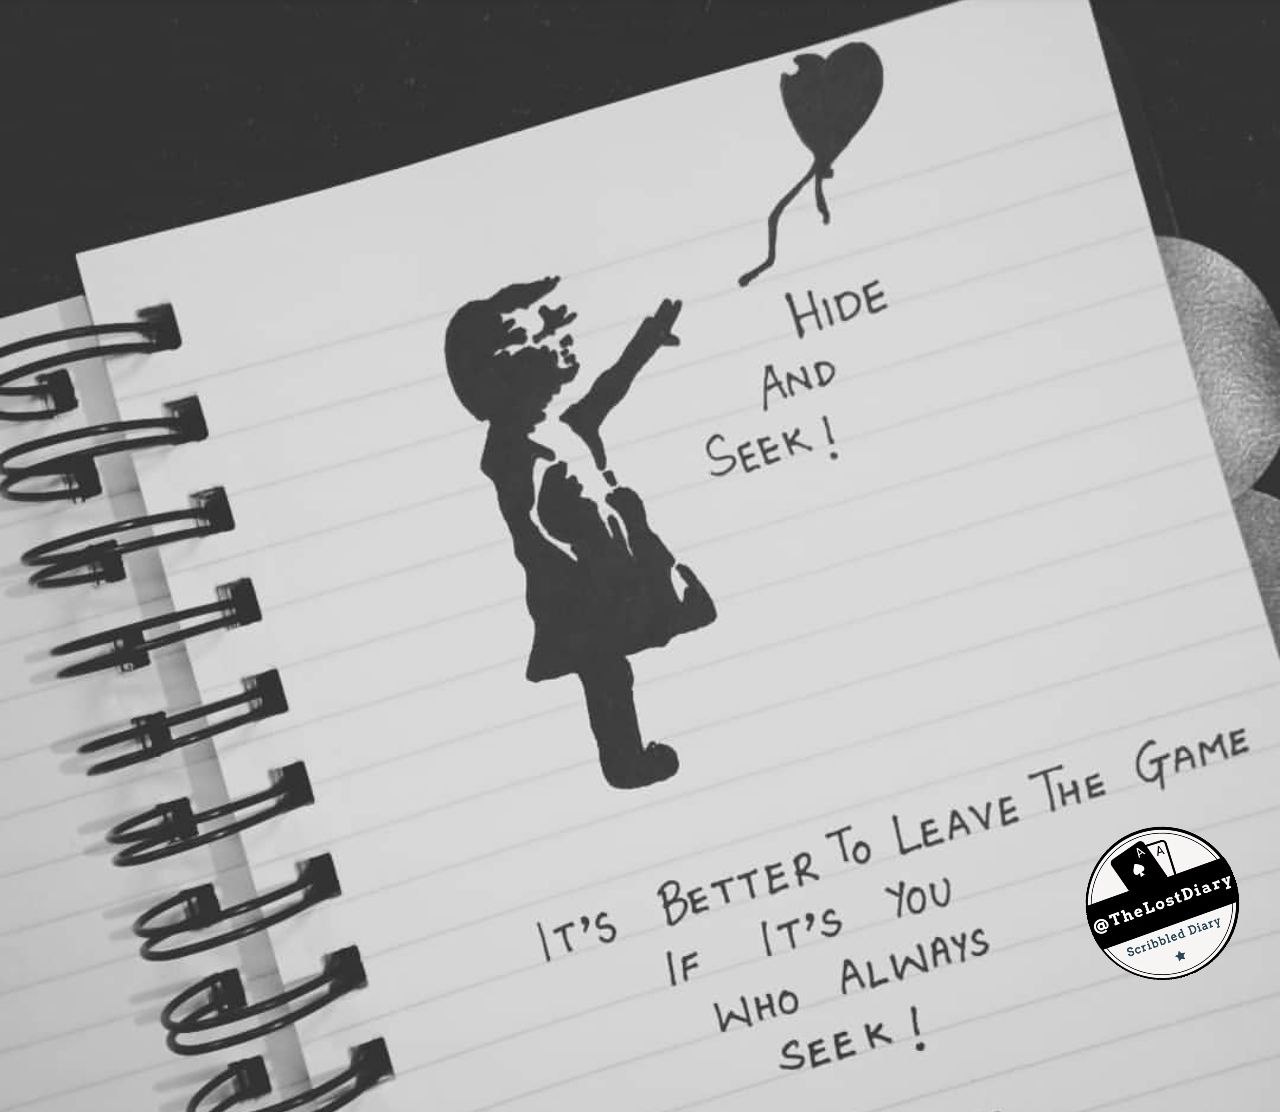 HIDE
AND
SEEK!
IT'S BETTER TO LEAVE THE GAME
IF IT'S YOU
WHO ALWAYS
SEEK!
A A
@TheLostDiary
Scribbled Diary